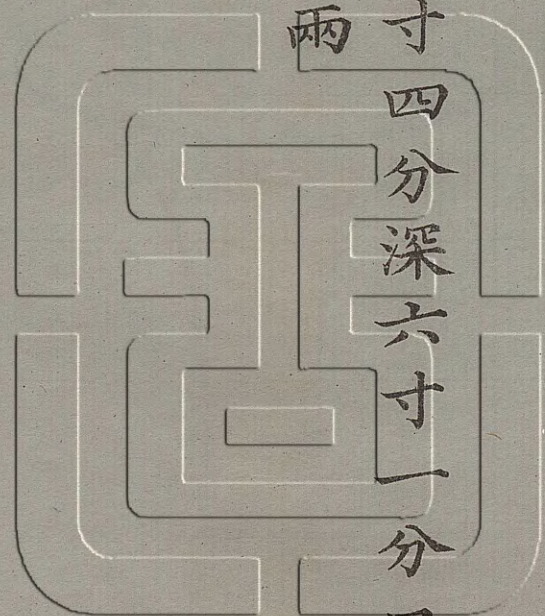 寸四分深六寸一分
兩